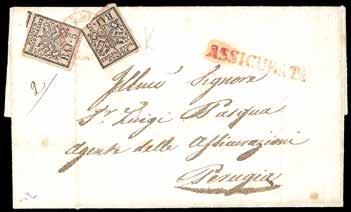 ASSICURATA
Illmo Signore
Sr. Luigi Pasqua
Agente delle Assicurazioni
Perugia
2/